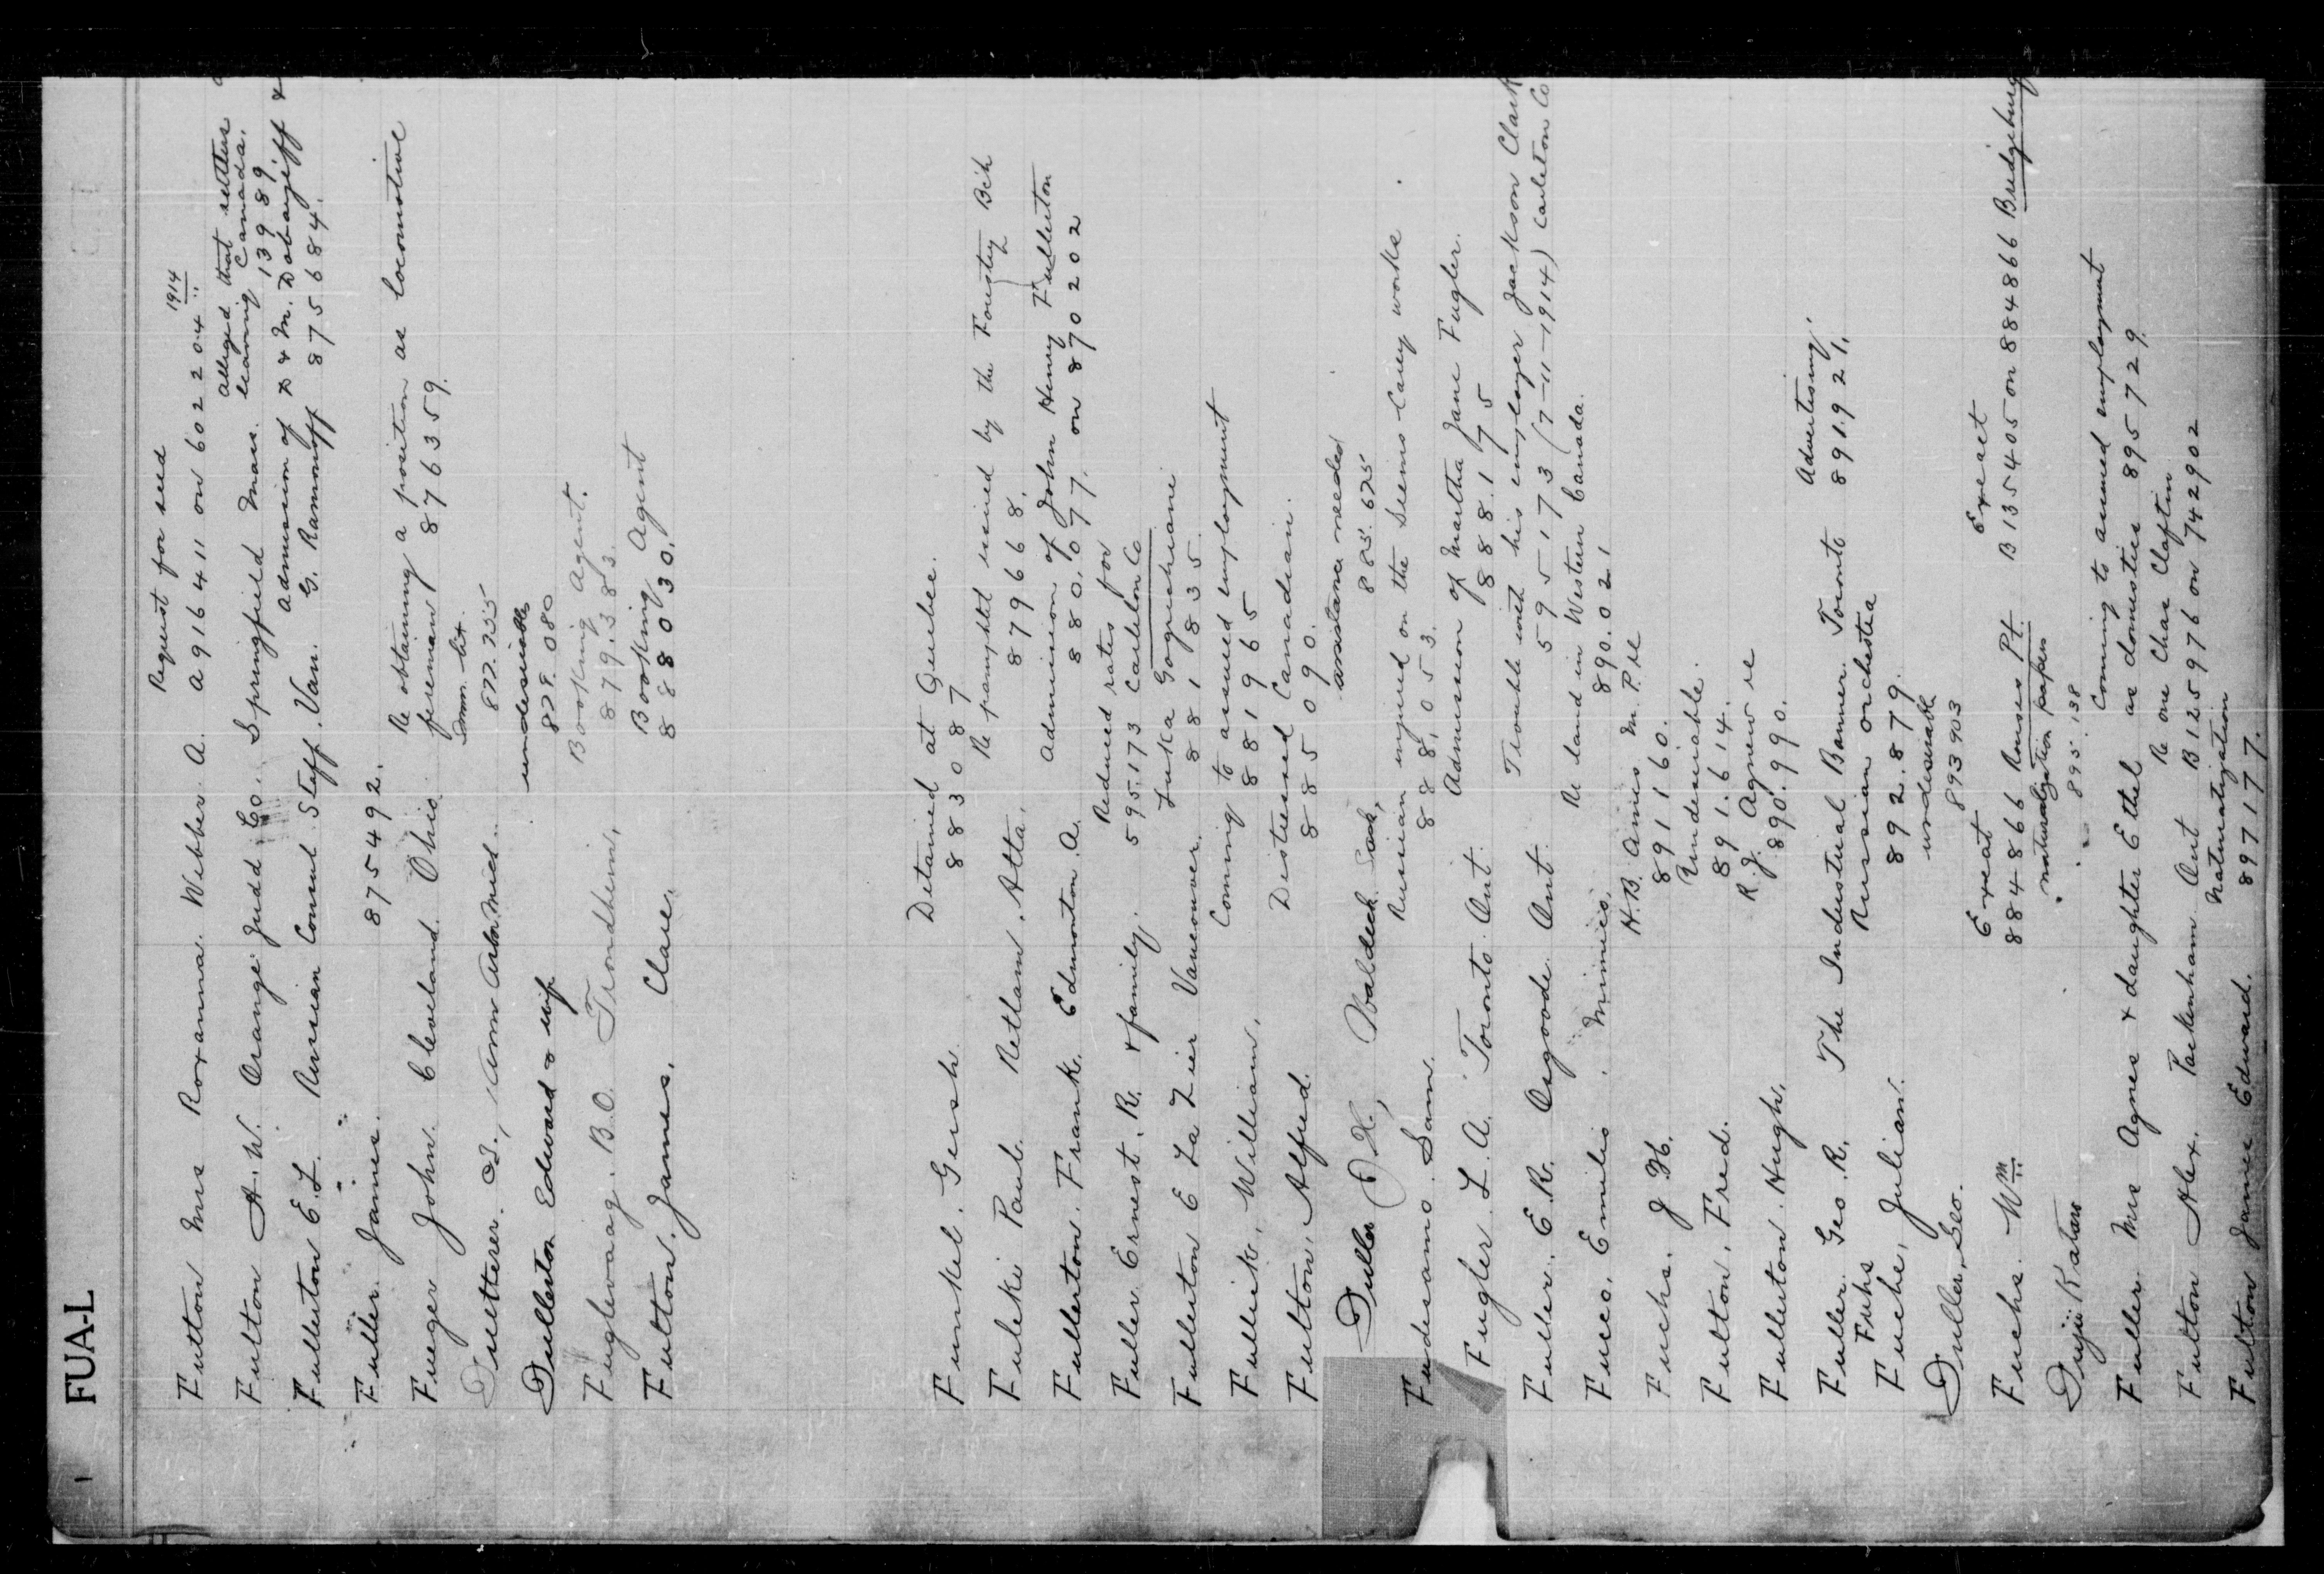 FUA-L
1
1914
Request for seed
Fulton Mrs Roxanna. Webber A. A916411 on 6022204
alleged that settlers
Fulton A. W. Orange Judd Co. Springfield Mass. leaving Canada. 13989
Admission of D & M. Dobanjeff &
Fullerton E. L. Russian Consul Steff. Van. G. Ramonoff 875684.
Fuller James. 875492.
Re obtaining a position as locomotive
Fueger John. Cleveland. Ohio fireman 876359.
Imm. lit.
Fultterer. A., Ann Arbor. Mich. 877.735
undesirable
Fullerton Edward & wife 878.080
Booking Agent.
Fuglevaag. B.O. Trondhem, 879.383.
Booking Agent
Fulton. James. Clare. 888030.
Detained at Quebec.
Funkel. Gersh 883087
Re pamphlet issued by the Forestry Bch
Fuleki Paul. Retlaw. Alta. 879668.
Admission of John Henry Fullerton
Fullerton. Frank. Edmonton A. 880.077. on 8702 02
Reduced rates for
Fuller Ernest. R. & family. 595.173 Carleton Co
Fullerton E La Zier Vancouver. 881835.
Coming to assured employment
Fullick, William, 881965
Distressed Canadian.
Fulton, Alfred. 885090.
assistance needed
Fuller O H, Waldeck Sask, 885.675
Russian injured on the Seems Carey works.
Fuderanno. Sam. 888,053.
Admission of Martha Jane Fugler.
Fugler. L. A. Toronto Ont. 888.175
Trouble with his employer Jackson Clark
Fuller. E. R. Osgoode Ont. 595173 (7-11-1914) Carleton Co
Re land in Western Canada.
Fucco. Emilio. Mimico. 890.021
H. B. Ames M.P. re
Fuchs. J H. 891160.
Undesirable.
Fulton, Fred. 891.614.
R. J. Agnew re
Fullerton. Hugh, 890.990.
Advertising.
Fuller. Geo. R. The Industrial Banner. Toronto 891.921.
Fuhs Russian orchestra
Fuche, Julian. 892.879.
undesirable
Fuller, Leo. 893903
Exeat Exeat
Fuchs. Wm 884866 Rouses Pt. B135405 on 884866 Bridgeburg
naturalization papers
Fujii Kataro 895.138
Coming to assured employment
Fuller. Mrs Agnes & daughter Ethel as domestics 895729.
Re one Chas Claftin
Fulton Alex. Pakenham Ont B125976 on 742902
Naturalization
Fulton James Edward. 897177.